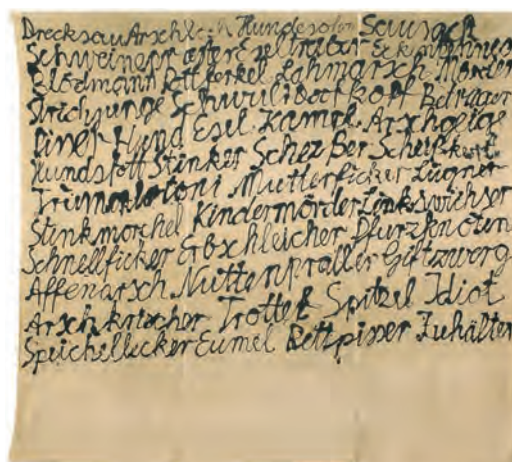 Drecksau Arschloch Hundesohn Sausack
Schweinepriester Eseltreiber
Blödmann Dottferkel Lahmarsch Mörder
Strichjunge Schwuli Betrüger
Hund Esel Kamel Arschgeige
Hundsfott Stinker Scheißer Scheißkerl
Mutterficker Lügner
Stinkmorchel Kindermörder Linkswichser
Schnellficker Erbschleicher Pfurzknoten
Affenarsch Nuttenpraller Giftzwerg
Arschkriecher Trottel Spitzel Idiot
Speichellecker Eumel Bettpisser Zuhälter